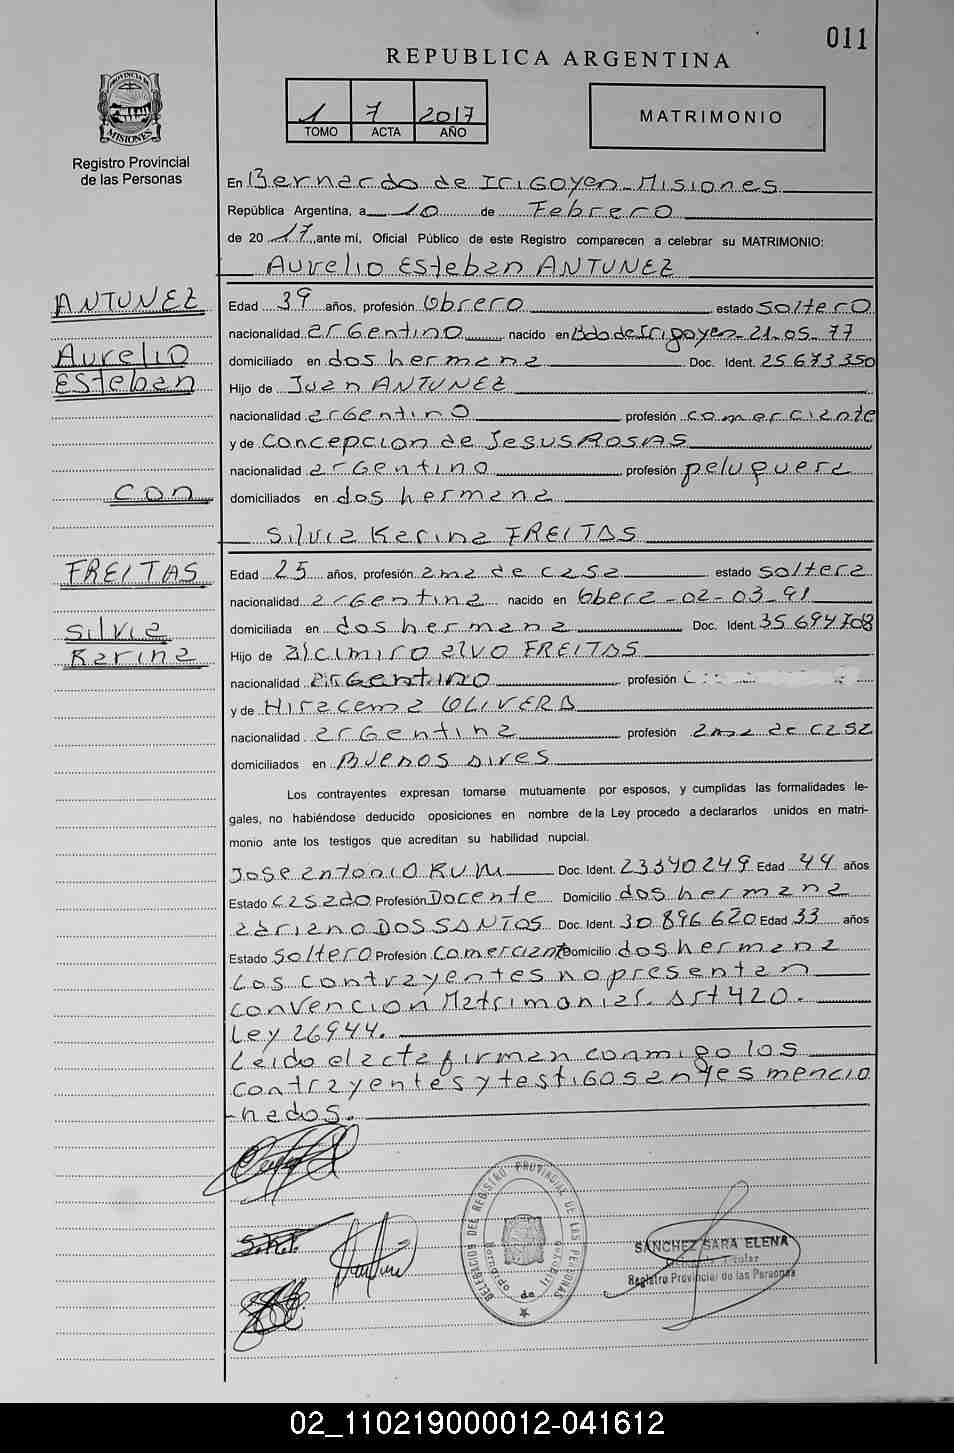 011
REPUBLICA ARGENTINA
PROVINCIA DE
MISIONES
Registro Provincial
de las Personas
1 7 2017
TOMO ACTA AÑO
MATRIMONIO
En Bernardo de Irigoyen - Misiones
República Argentina, a 10 de Febrero
de 20 17 ante mí, Oficial Público de este Registro comparecen a celebrar su MATRIMONIO:
Aurelio Esteban ANTUNEZ
ANTUNEZ
Aurelio
Esteban
con
FREITAS
Silvia
Karina
Edad 39 años, profesión Obrero estado soltero
nacionalidad argentino nacido en Bdo de Irigoyen - 21-05-77
domiciliado en dos hermana Doc. Ident. 25.673.350
Hijo de Juan ANTUNEZ
nacionalidad argentino profesión comerciante
y de Concepcion de Jesus ROSAS
nacionalidad argentino profesión peluquera
domiciliados en dos hermana
Silvia Karina FREITAS
Edad 25 años, profesión ama de casa estado soltera
nacionalidad argentina nacido en Obera - 02-03-91
domiciliada en dos hermana Doc. Ident. 35.694.708
Hijo de alcimiro alvo FREITAS
nacionalidad argentino profesión
y de Hiracema OLIVERA
nacionalidad argentina profesión ama de casa
domiciliados en Buenos Aires
Los contrayentes expresan tomarse mutuamente por esposos, y cumplidas las formalidades le-
gales, no habiéndose deducido oposiciones en nombre de la Ley procedo a declararlos unidos en matri-
monio ante los testigos que acreditan su habilidad nupcial.
Jose antonio KUM Doc. Ident. 23340249 Edad 44 años
Estado casado Profesión Docente Domicilio dos hermana
adriano DOS SANTOS Doc. Ident. 30 896 620 Edad 33 años
Estado Soltero Profesión Comerciante Domicilio dos hermana
Los contrayentes no presentan
convencion Matrimonial. Art 420.
Ley 26944.
Leido el acta firman conmigo los
contrayentes y testigos antes mencio
-nados.
S.K.F.
DELEGACION DEL REGISTRO PROVINCIAL DE LAS PERSONAS
Bernardo de Irigoyen
SANCHEZ SARA ELENA
Registro Provincial de las Personas
02_110219000012-041612